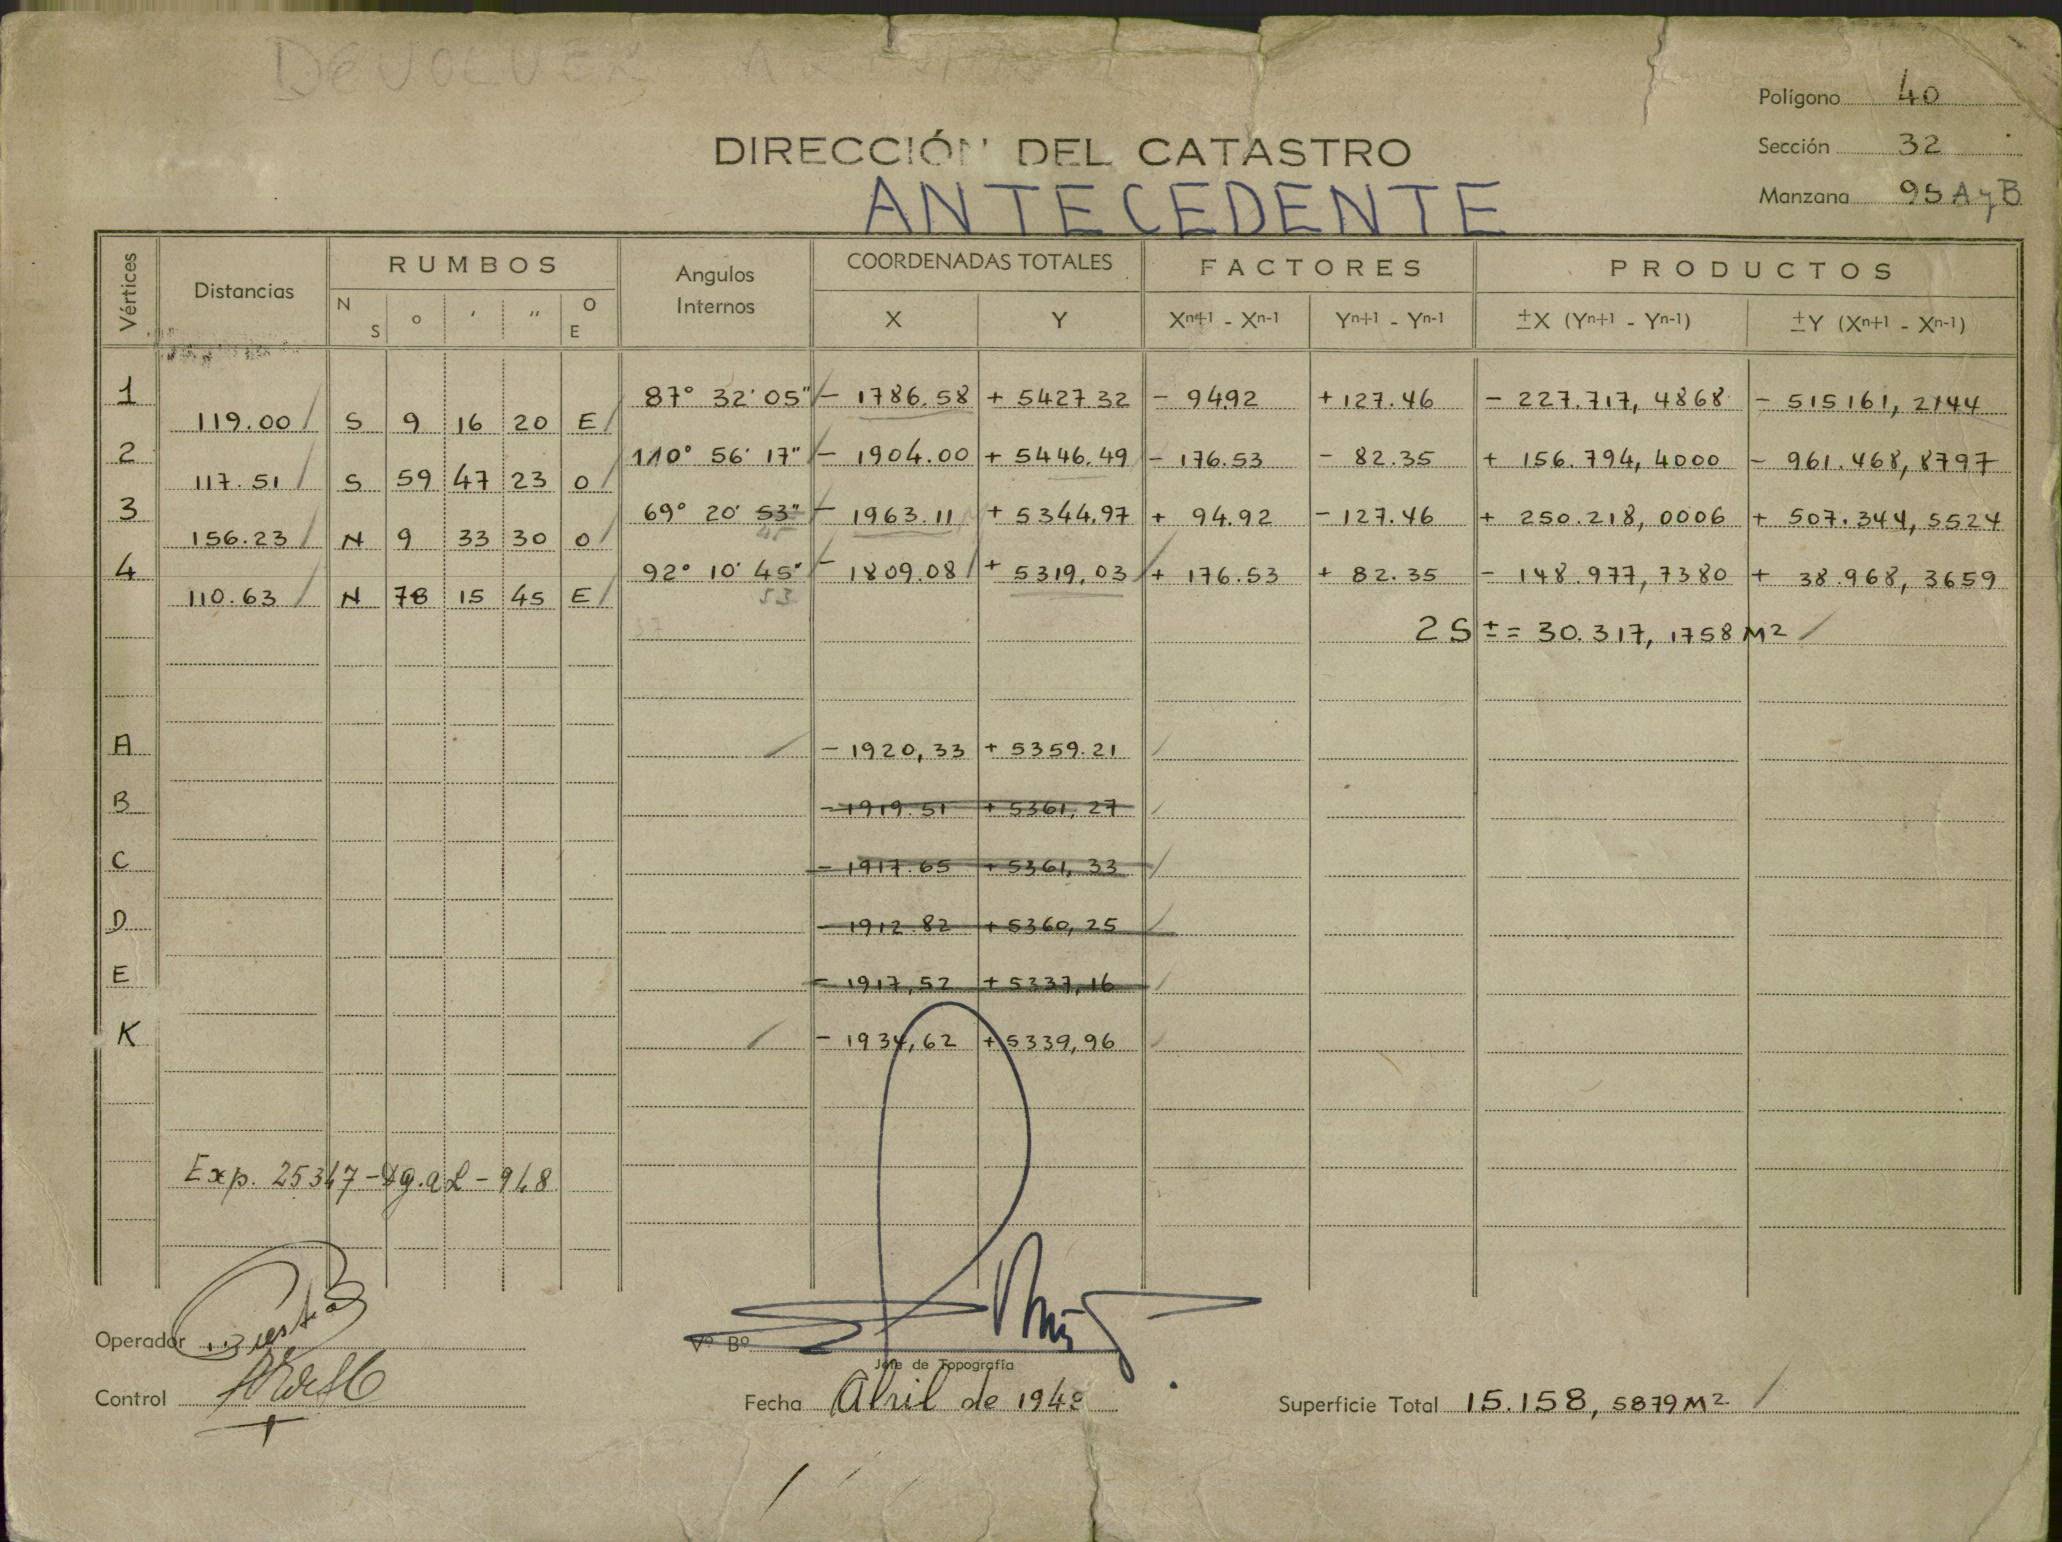 DEVOLVER
Polígono 40
Sección 32
Manzana 95 A y B
DIRECCIÓN DEL CATASTRO
ANTECEDENTE
Vértices Distancias RUMBOS Angulos Internos COORDENADAS TOTALES FACTORES PRODUCTOS
N S ° ' " O E X Y Xⁿ⁺¹ - Xⁿ⁻¹ Yⁿ⁺¹ - Yⁿ⁻¹ ±X (Yⁿ⁺¹ - Yⁿ⁻¹) ±Y (Xⁿ⁺¹ - Xⁿ⁻¹)
1 87° 32' 05" - 1786.58 + 5427.32 - 94.92 + 127.46 - 227.717, 4868 - 515161, 2144
119.00 S 9 16 20 E
2 110° 56' 17" - 1904.00 + 5446.49 - 176.53 - 82.35 + 156.794, 4000 - 961.468, 8797
117.51 S 59 47 23 O
3 69° 20' 53" - 1963.11 + 5344.97 + 94.92 - 127.46 + 250.218, 0006 + 507.344, 5524
45
156.23 N 9 33 30 O
4 92° 10' 45" - 1809.08 + 5319,03 + 176.53 + 82.35 - 148.977, 7380 + 38.968, 3659
53
110.63 N 78 15 45 E
2 S ± = 30.317, 1758 M²
A - 1920,33 + 5359.21
B - 1919.51 + 5361,27
C - 1917.65 + 5361,33
D - 1912.82 + 5360,25
E - 1917,52 + 5337,16
K - 1934,62 + 5339,96
Exp. 25347 - Dg.a L - 948
Operador
Vº Bº
Jefe de Topografía
Control
Fecha Abril de 194
Superficie Total 15.158, 5879 M²